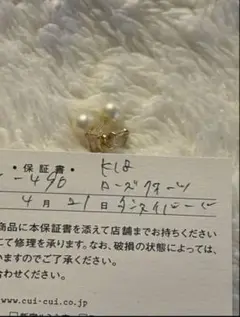 ・保証書・ K18
-490 ローズクォーツ
4月21日
商品に本保証書を添えて店舗までお持ちください
にて修理を承ります。なお、破損の状態によっては、
いますのでご了承ください。
合わせください。
www.cui-cui.co.jp